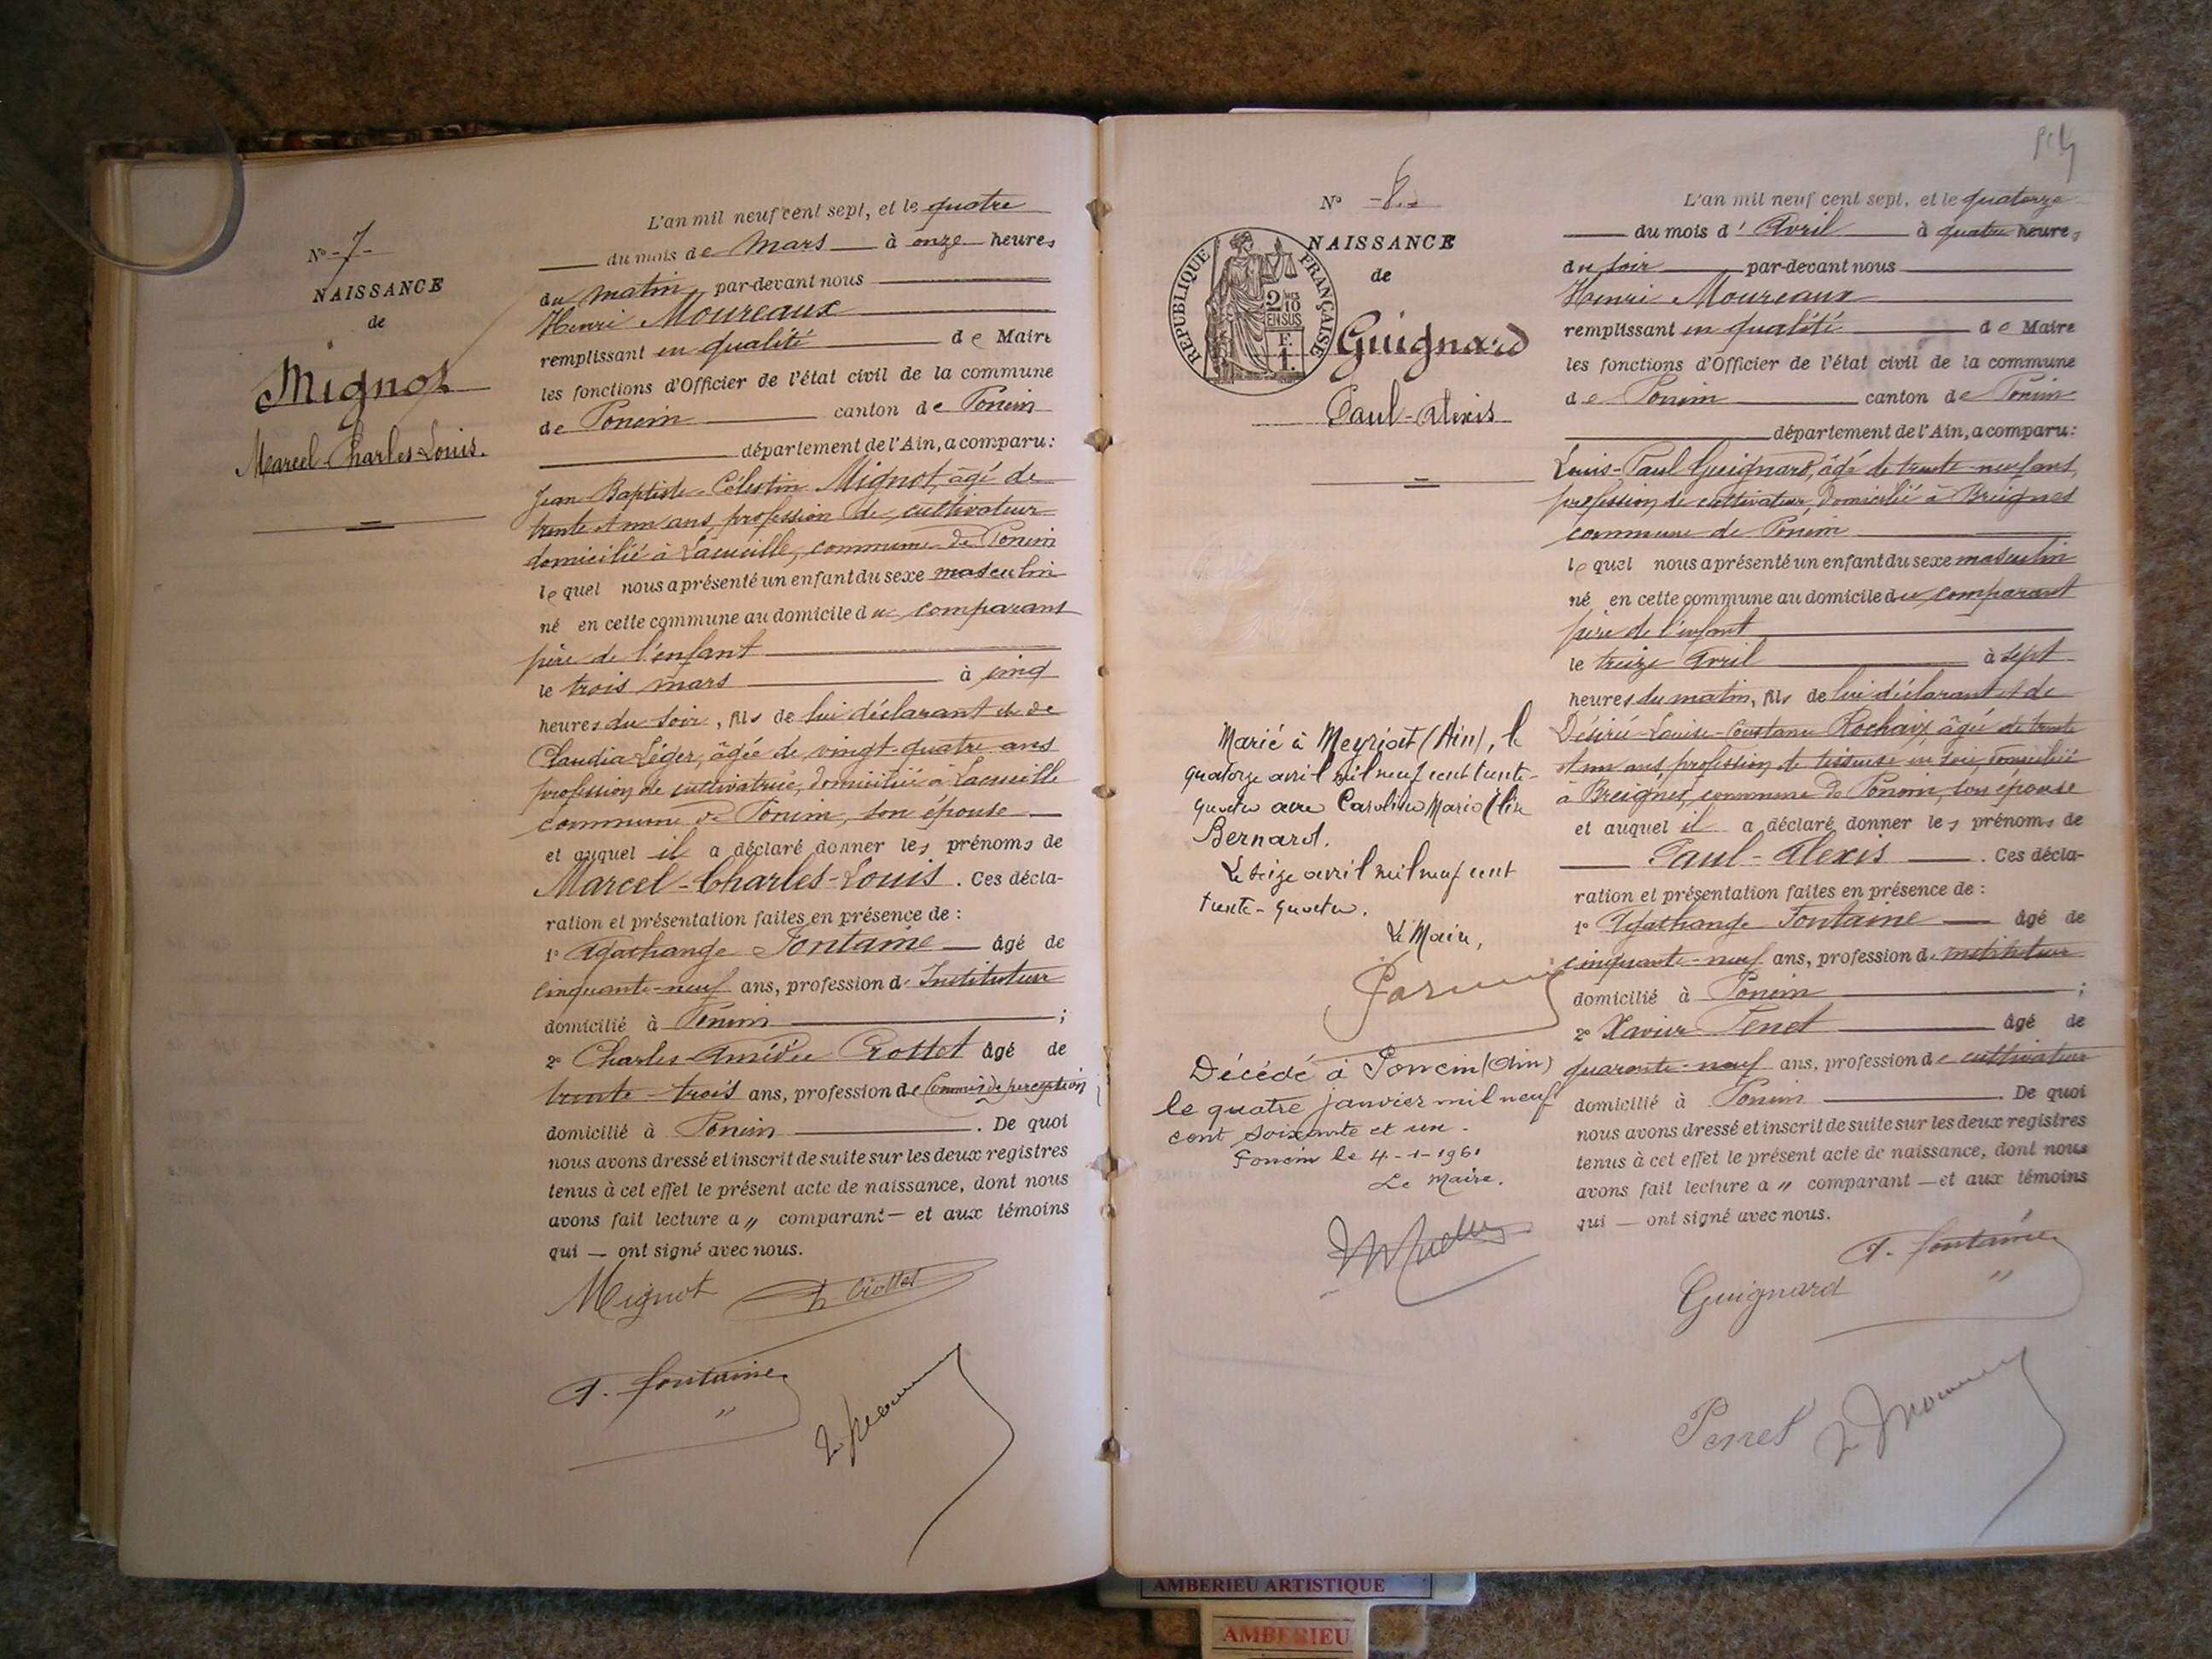 N° -7-
NAISSANCE
de
Mignot
Marcel-Charles-Louis.
L'an mil neuf cent sept, et le quatre
du mois de Mars à onze heures
du matin, par-devant nous
Henri Moureaux
remplissant en qualité de Maire
les fonctions d'Officier de l'état civil de la commune
de Poncin canton de Poncin
département de l'Ain, a comparu :
Jean-Baptiste-Célestin Mignot, âgé de
trente et un ans, profession de cultivateur
domicilié à Lacueille, commune de Poncin
lequel nous a présenté un enfant du sexe masculin
né en cette commune au domicile du comparant
père de l'enfant
le trois mars à cinq
heures du soir, fils de lui déclarant et de
Claudia Léger, âgée de vingt-quatre ans
profession de cultivatrice, domiciliée à Lacueille
commune de Poncin, son épouse
et auquel il a déclaré donner les prénoms de
Marcel-Charles-Louis. Ces décla-
ration et présentation faites en présence de :
1° Agathange Fontaine âgé de
cinquante-neuf ans, profession d'Instituteur
domicilié à Poncin ;
2° Charles-Amédée Crottet âgé de
trente-trois ans, profession de Commis de perception
domicilié à Poncin . De quoi
nous avons dressé et inscrit de suite sur les deux registres
tenus à cet effet le présent acte de naissance, dont nous
avons fait lecture a " comparant — et aux témoins
qui — ont signé avec nous.
Mignot Crottet
A. Fontaine
N° -8-
NAISSANCE
de
RÉPUBLIQUE FRANÇAISE
2/10 EN SUS
F. 1.
Guignard
Paul-Alexis
Marié à Meyriat (Ain), le
quatorze avril mil neuf cent trente-
quatre avec Caroline Marie
Bernard.
Le seize avril mil neuf cent
trente-quatre.
Le Maire,
Décédé à Poncin (Ain)
le quatre janvier mil neuf
cent soixante et un.
Poncin le 4-1-1961
Le Maire.
L'an mil neuf cent sept, et le quatorze
du mois d'Avril à quatre heures
du soir par-devant nous
Henri Moureaux
remplissant en qualité de Maire
les fonctions d'Officier de l'état civil de la commune
de Poncin canton de Poncin
département de l'Ain, a comparu :
Louis-Paul Guignard, âgé de trente-neuf ans,
profession de cultivateur, domicilié à Breignes
commune de Poncin
lequel nous a présenté un enfant du sexe masculin
né en cette commune au domicile du comparant
père de l'enfant
le treize Avril à sept
heures du matin, fils de lui déclarant et de
Désirée-Louise-Constance Rochaix, âgée de trente
et un ans, profession de tisseuse en soie, domiciliée
à Breignes, commune de Poncin, son épouse
et auquel il a déclaré donner les prénoms de
Paul-Alexis . Ces décla-
ration et présentation faites en présence de :
1° Agathange Fontaine âgé de
cinquante-neuf ans, profession d'instituteur
domicilié à Poncin ;
2° Xavier Penet âgé de
quarante-neuf ans, profession de cultivateur
domicilié à Poncin . De quoi
nous avons dressé et inscrit de suite sur les deux registres
tenus à cet effet le présent acte de naissance, dont nous
avons fait lecture a " comparant — et aux témoins
qui — ont signé avec nous.
A. Fontaine
Guignard
Penet
AMBERIEU ARTISTIQUE
AMBERIEU